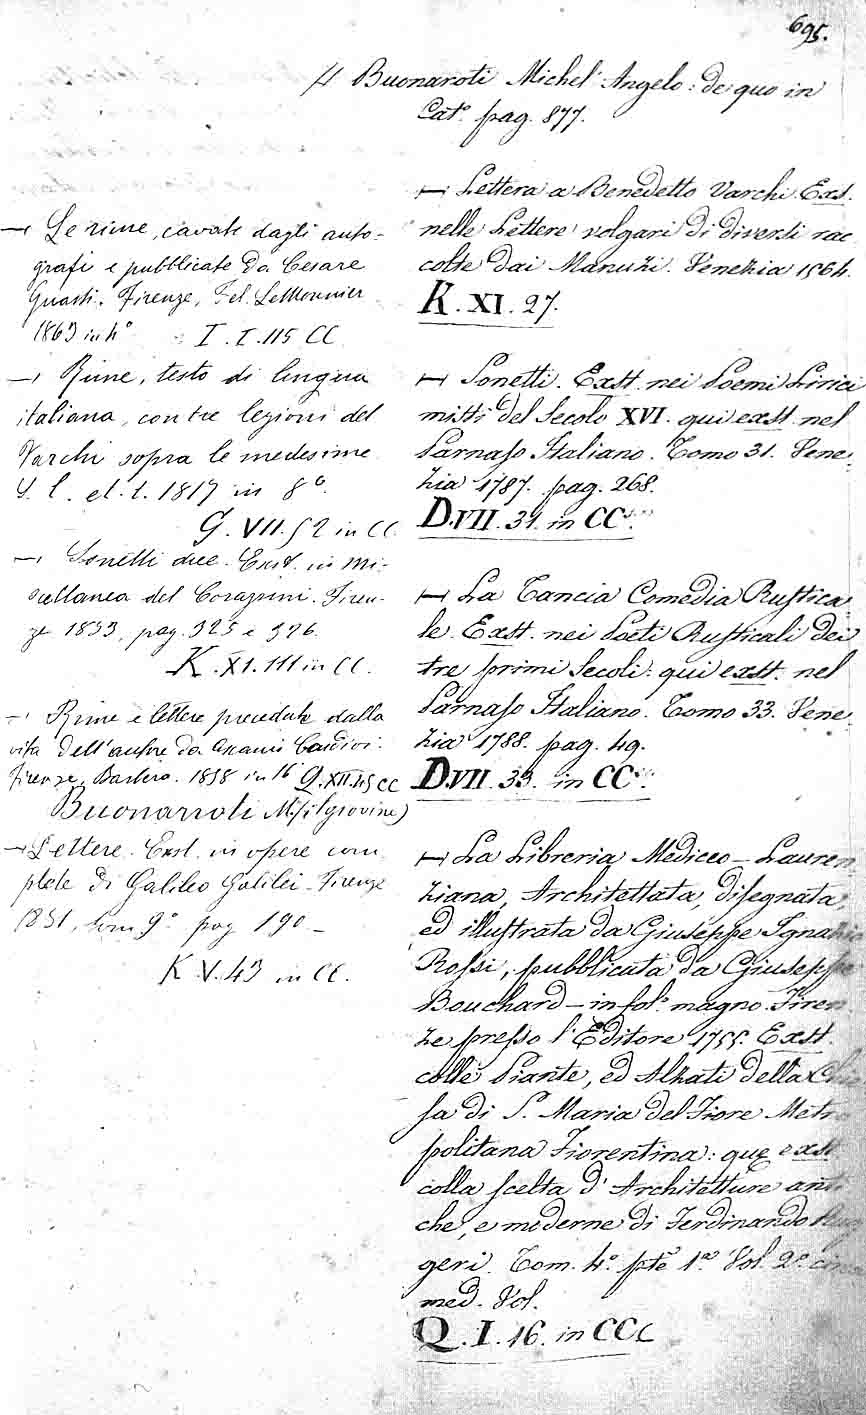 695.
Buonaroti Michel' Angelo: de quo in
Cat.° pag. 877.
Lettera a Benedetto Varchi. Exst.
nelle Lettere volgari di diversi rac
colte dai Manuzi. Venezia 1564.
K. XI. 27.
Sonetti. Exst. nei Poemi Lirici
misti del Secolo XVI. qui exst. nel
Parnaso Italiano. Tomo 31. Vene-
zia 1787. pag. 268.
D.VII. 31. in CC
La Tancia Comedia Rustica
le. Exst. nei Poeti Rusticali dei
tre primi Secoli: qui exst. nel
Parnaso Italiano. Tomo 33. Vene-
zia 1788. pag. 49.
D.VII. 33. in CC
La Libreria Mediceo-Lauren
ziana, Architettata, disegnata,
ed illustrata da Giuseppe Ignazio
Rossi, pubblicata da Giuseppe
Bouchard - in fol.° magno. Firen
ze presso l'Editore 1755. Exst.
colle Piante, ed Alzati della Chie
sa di S. Maria del Fiore Metro
politana Fiorentina: quę exst
colla scelta d'Architetture anti
che, e moderne di Ferdinando Rug
geri. Tom. 4.° pte 1.a Vol. 2.°
med. Vol.
Q. I. 16. in CCC
Le rime, cavate dagli auto-
grafi e pubblicate da Cesare
Guasti. Firenze, Fel. LeMonnier
1863 in 4° I. I. 115 CC
Rime, testo di lingua
italiana, con tre lezioni del
Varchi sopra le medesime
S. l. et. t. 1817 in 8°.
G. VII. 52 in CC
Sonetti due. Exst. in Mi-
scellanea del Corazzini. Firen-
ze 1853, pag. 325 e 326.
K. XI. 111 in CC.
Rime e lettere precedute dalla
vita dell'autore da Ascanio Condivi.
Firenze, Barbera. 1858 in 16 Q. XII. 45 CC
Buonarroti M. (il giovine)
Lettere. Exst. in opere com
plete di Galileo Galilei. Firenze
1851, tom 9° pag 190.
K. V. 43 in CC.